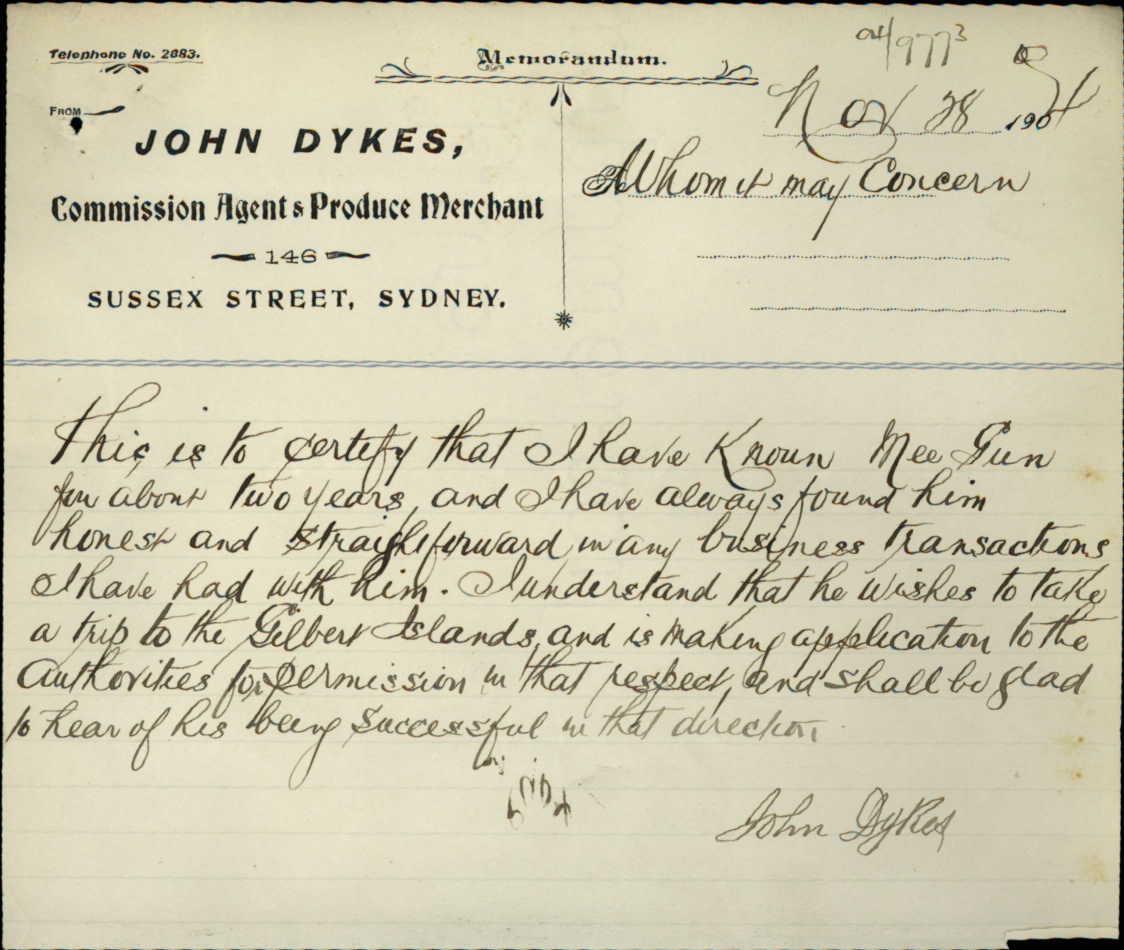 Telephone No. 2683.
Memorandum.
04/9773
FROM
Nov 28 1904
JOHN DYKES,
To Whom it may Concern
Commission Agent & Produce Merchant
146
SUSSEX STREET, SYDNEY.
This is to certify that I have Known Mee Gun
for about two years, and I have always found him
honest and straightforward in any business transactions
I have had with him. I understand that he wishes to take
a trip to the Gilbert Islands, and is making application to the
Authorities for permission in that respect, and shall be glad
to hear of his being successful in that direction
John Dykes